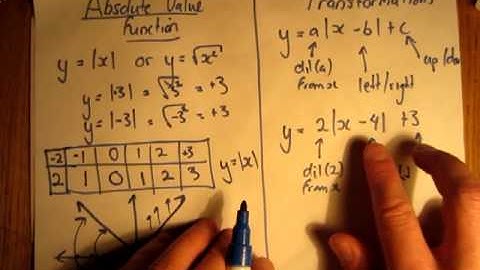 Absolute Value
Function
y = |x| or y = √x²
y = |+3| = √3² = +3
y = |-3| = √-3² = +3
-2 -1 0 1 2 +3
2 1 0 1 2 3
y = |x|
Transformations
y = a|x - b| + c
dil(a)
from x
left/right
up/do
y = 2|x - 4| + 3
dil(2)
from x